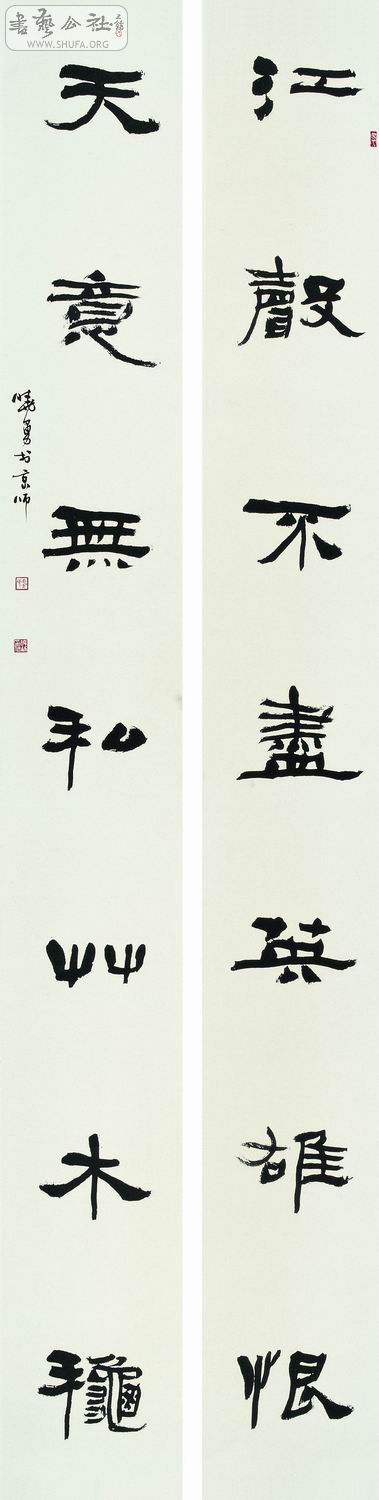 書藝公社
WWW.SHUFA.ORG
江聲不盡英雄恨
天意無私艸木龝
曉勇书京师